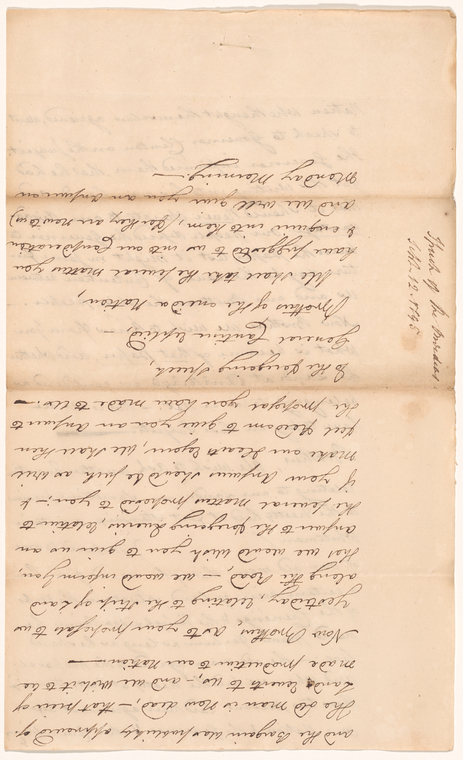 and the Bargain was publickly approved of
The old man is Now dead, — that piece of
Land reverts to us, — and we Wish it to be
made productive to our Nation —
Now Brothers, as to your proposals to us
Yesterday, relating to the Strip of Land
along the Road, — we would inform you,
that we would wish you to give us an
answer to the foregoing Queries, relative to
the several matters proposed to you; — &
if your Answers should be such as will
make our Hearts Rejoice, we shall then
feel freedom to give you an Answer to
the proposal you have made to Us. —
To the foregoing Speech,
General Cantine replied, —
Brothers of the oneida Nation,
We shall take the several matters you
have suggested to us into our Consideration
& enquire into them, (for they are New to us)
and we will give you an Answer on
Monday Morning. —
Speech of the Oneidas
Sept. 12. 1795